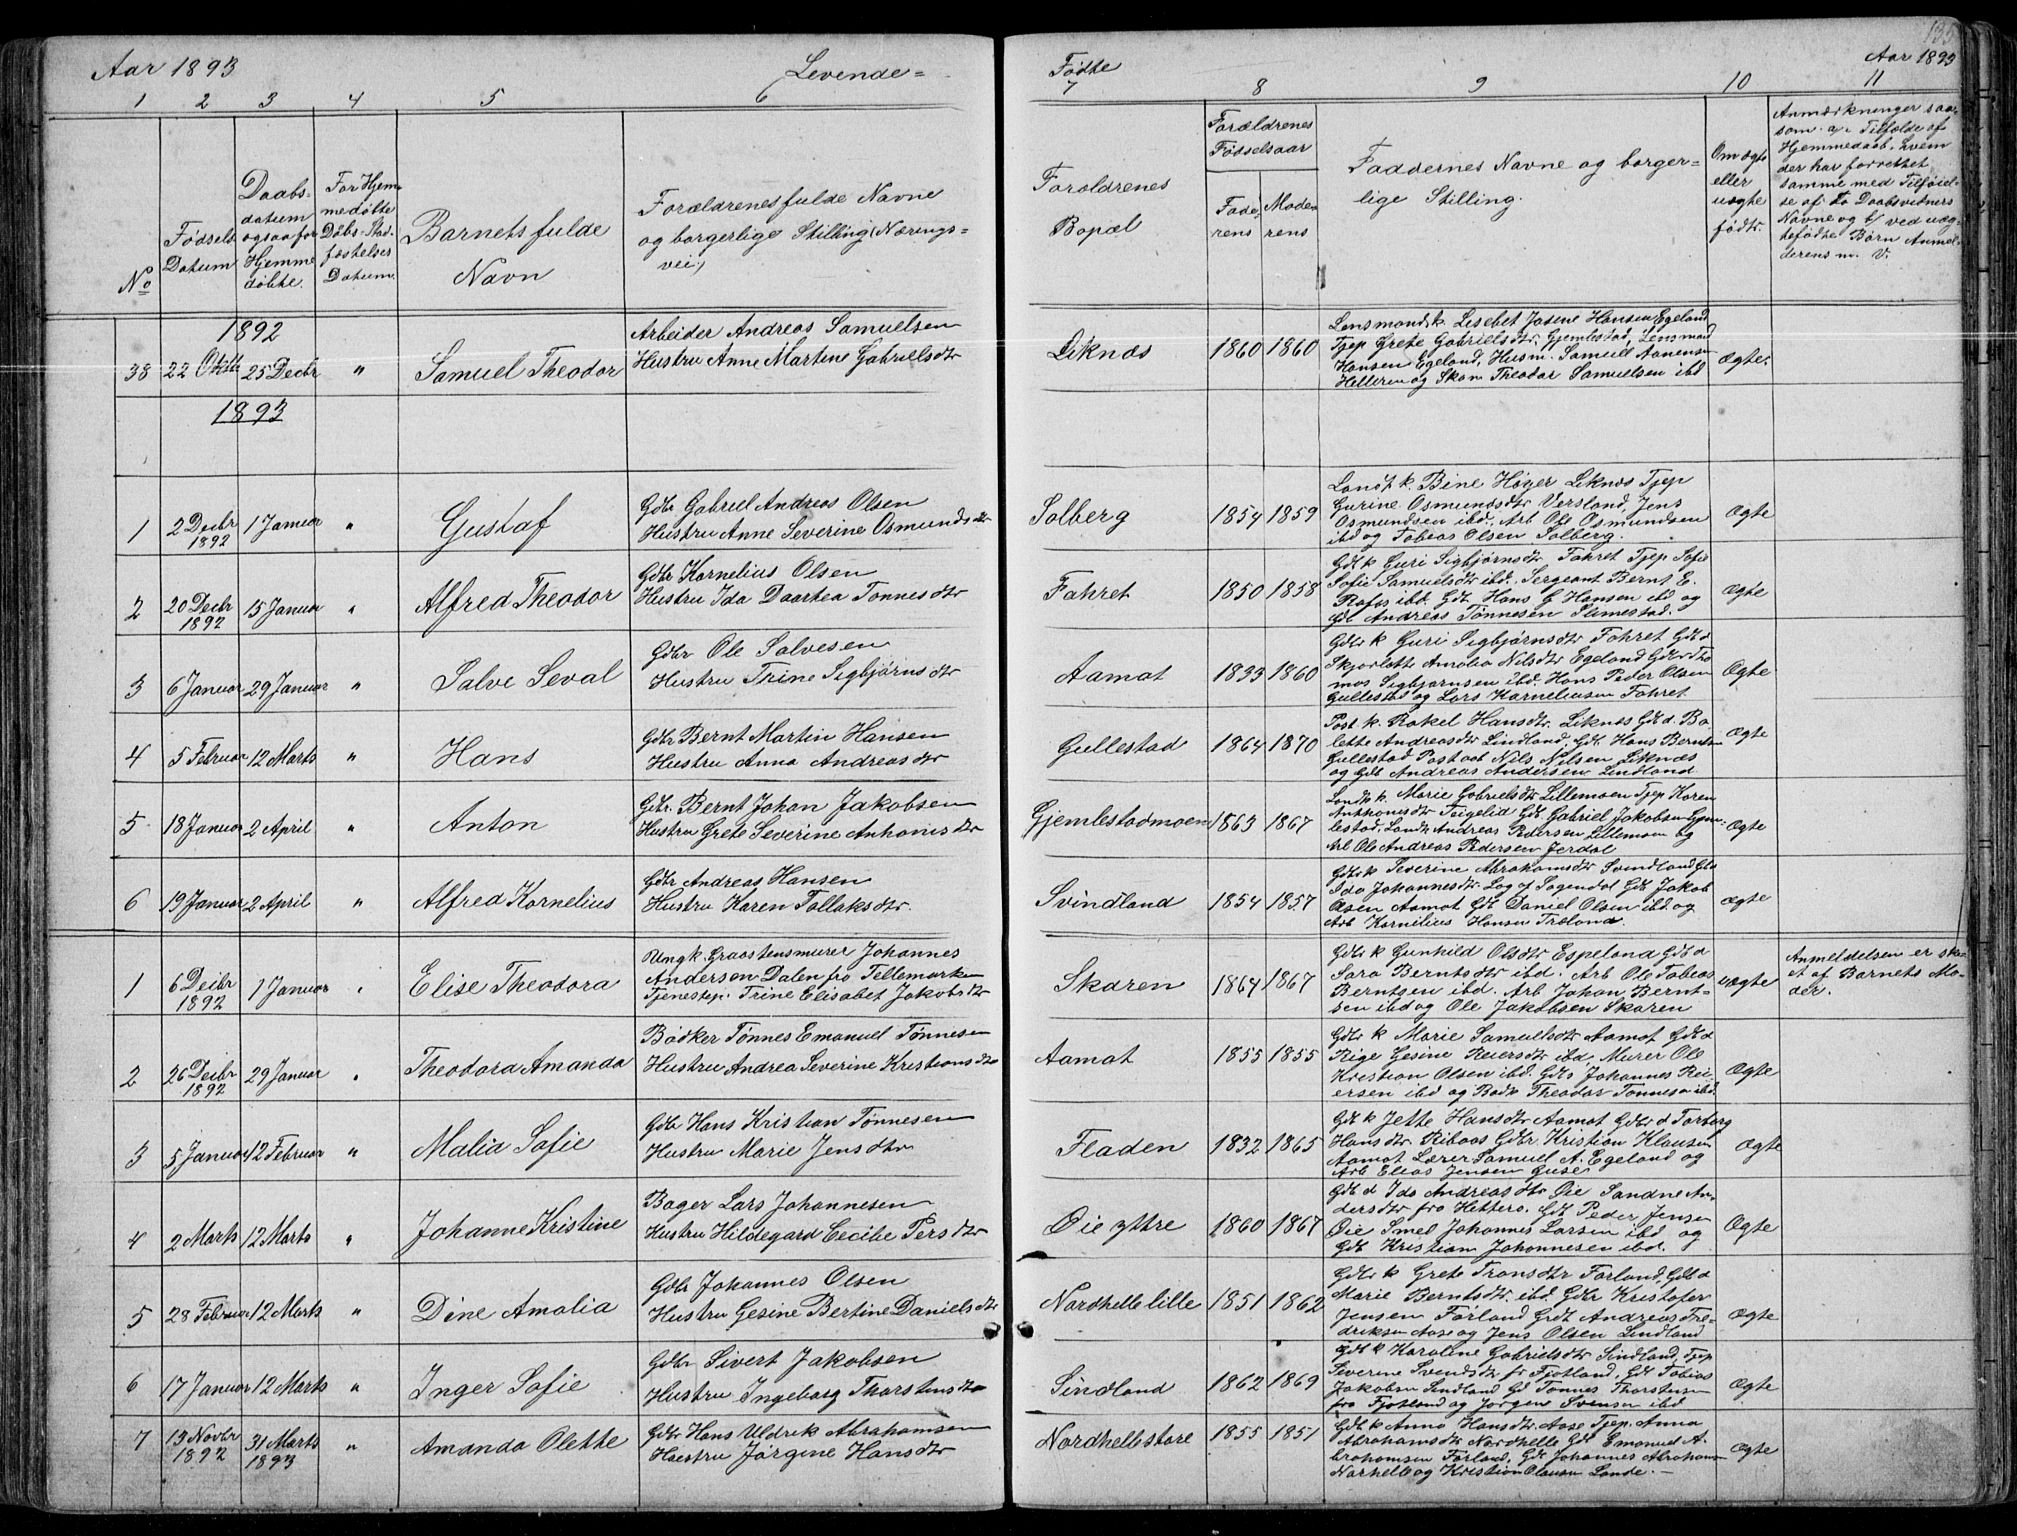 Aar 1893
Levende=
1 2 3 4 5 6
No
Fødsels
Datum
Daabs-
datum
ogsaa for
Hjemme
døbte.
For Hjem-
medøbte
Dåbs-Stad-
fæstelses
Datum.
Barnets fulde
Navn
Forældrenes fulde Navne
og borgerlige Stilling (Nærings=
vei)
1892
38 22 Oktb 25 Decbr " Samuel Theodor
Arbeider Andreas Samuelsen
Hustru Anne Martine Gabrielsdtr
1893
1 2 Decbr 1892 1 Januar " Gustaf
Gdbr Gabriel Andreas Olsen
Hustru Anne Severine Osmundsdtr
2 20 Decbr 1892 15 Januar " Alfred Theodor
Gdbr Kornelius Olsen
Hustru Ida Daartea Tønnesdtr
3 6 Januar 29 Januar " Salve Seval
Gdbr Ole Salvesen
Hustru Trine Sigbjørnsdtr
4 5 Februar 12 Marts " Hans
Gdbr Bernt Martin Hansen
Hustru Anna Andreasdtr
5 18 Januar 2 April " Anton
Gdbr. Bernt Johan Jakobsen
Hustru Grete Severine Anthonisdtr
6 19 Januar 2 April " Alfred Kornelius
Gdbr Andreas Hansen
Hustru Karen Tollaksdtr.
1 6 Decbr 1892 1 Januar " Elise Theodora
Ungk. Graastensmurer Johannes
Andersen Dalen fra Tellemarken
Tjenestep. Trine Elisabet Jakobsdtr
2 26 Decbr 1892 29 Januar " Theodora Amanda
Bødker Tønnes Emanuel Tønnesen
Hustru Andrea Severine Kristiansdtr
3 5 Januar 12 Februar " Malia Sofie
Gdbr Hans Kristian Tønnesen
Hustru Marie Jensdtr
4 2 Marts 12 Marts " Johanne Kristine
Bager Lars Johannesen
Hustru Hildegard Cecilie Persdtr
5 28 Februar 12 Marts " Dine Amalia
Gdbr Johannes Olsen
Hustru Gesine Bertine Danielsdtr
6 17 Januar 12 Marts " Inger Sofie
Gdbr Sivert Jakobsen
Hustru Ingeborg Thorstensdtr
7 13 Novbr 1892 31 Marts 1893 " Amanda Olette
Gdbr Hans Uldrik Abrahamsen
Hustru Jørgine Hansdtr
135
Fødte
Aar 1893
7 8 9 10 11
Forældrenes
Bopæl
Forældrenes
Fødselsaar
Fade-
rens
Mode-
rens
Faddernes Navne og borger=
lige Stilling.
Om ægte
eller
uægte
født.
Anmærkninger saa-
som a/. Tilfælde af
Hjemmedaab, hvem
der har forrettet
samme med Tilføiel-
se af to Daabsvidners
Navne og b/ ved uæg-
tefødte Børn Anmel-
derens m. V.
Liknæs 1860 1860 ægte.
Lensmandsk. Lisebet Josene Hansen Egeland
Tjep Grete Gabrielsdtr. Gjemlestad, Lensmand
Hansen Egeland, Husm. Samuel Aanensen
Helleren og Skom Theodor Samuelsen ibd
Solberg 1854 1859 Ægte
Landh. k. Bine Høyer Liknæs Tjep
Gurine Osmundsdtr Versland, Jens
Osmundsen ibd., Arb Ole Osmundsen
ibd og Tobias Olsen Solberg.
Fahret 1850 1858 Ægte
Gdb k Guri Sigbjørnsdtr Fahret Tjep Sofie
Sofie Samuelsdtr ibd. Sergeant Bernt E.
Hans E Hansen ibd og
Gdb Andreas Tønnesen Slimestad.
Aamot 1833 1860 Ægte
Gdbr k Guri Sigbjørnsdtr Fahret Gdb d
Amalia Nilsdtr Egeland Gdbr Tho
mas Sigbjørnsen ibd. Hans Peder Olsen
Gullestad og Lars Korneliusen Fahret
Gullestad 1864 1870 Ægte
Post k. Rakel Hansdtr. Liknes Gdb d. Bo
lette Andreasdtr Lindland, Gdb. Hans Berntsen
Gullestad Postaab Nils Nilsen Liknæs
og Gdb Andreas Andersen Lindland
Gjemlestadmoen 1863 1867 Ægte
Landh k. Marie Gabrielsdtr Lillemoen Tjep Karen
Anthonisdtr Teigelid Gdb Gabriel Jakobsen Gjem-
lestad, Landh Andreas Pedersen Lillemoen og
Arb Ole Andreas Pedersen Jerdal
Svindland 1854 1857 ægte
Gdbr k Severine Abrahamsdtr Svindland Gdb
Ida Johannesdtr Log af Sogendal Gdb Jakob
Olsen Aamot Gdb Daniel Olsen ibd. og
Arb Kornelius Hansen Træland
Skaren 1864 1867 uægte
Gdbr k Gunhild Olsdtr Espeland Gdb d
Sara Berntsdtr ibd. Arb Ole Tobias
Berntsen ibd. Arb Johan Bernt-
sen ibd og Ole Jakobsen Skaren
Anmeldelsen er ske-
et af Barnets Mo-
der.
Aamot 1855 1855 Ægte
Gdbr k Marie Samuelsdtr Aamot Gdb d
Gesine Reiersdtr ibd. Murer Ole
Kristian Olsen ibd. Gdbs Johannes Rei-
ersen ibd og Bødk Theodor Tønnesen ibd.
Fladen 1832 1865 Ægte
Gdb k Jette Hansdtr Aamot Gdbr d Torborg
Hansdtr. Ribaas Gdbr. Kristian Klausen
Aamot Lærer Samuel A. Egeland og
Arb Elias Jensen
Øie yttre 1860 1867 Ægte
Gdb d Ida Andreasdtr Øie Sandne An-
dersdtr fra Hitterø. Gdb Peder Jensen
Øie Smed Johannes Larsen ibd og
Gdb Kristian Johannesen ibd.
Nordhelle lille 1851 1862 Ægte
Gdbr k Grete Transdtr Førland, Gdb d
Marie Berntsdtr. ibd. Gdbr Kristofer
Jensen Førland Gdb Andreas Fre-
driksen Aase og Jens Olsen Lindland
Sindland 1862 1869 Ægte
Gdb k Karoline Gabrielsdtr Sindland, Tjep
Severine Svendsdtr fr Fjotland, Gdb Tobias
Jakobsen Sindland Gd Tønnes Thorstensen
fra Fjotland og Jørgen Svensen ibd
Nordhelle store 1855 1851 ægte
Gdb k Anna Hansdtr. Aase Tjep. Anna
Abrahamsdtr Nordhelle Gdb Emanuel A-
brahamsen Førland, Gdb Johannes Abrahamsen
Norhelle og Kristian Olausen Lande.